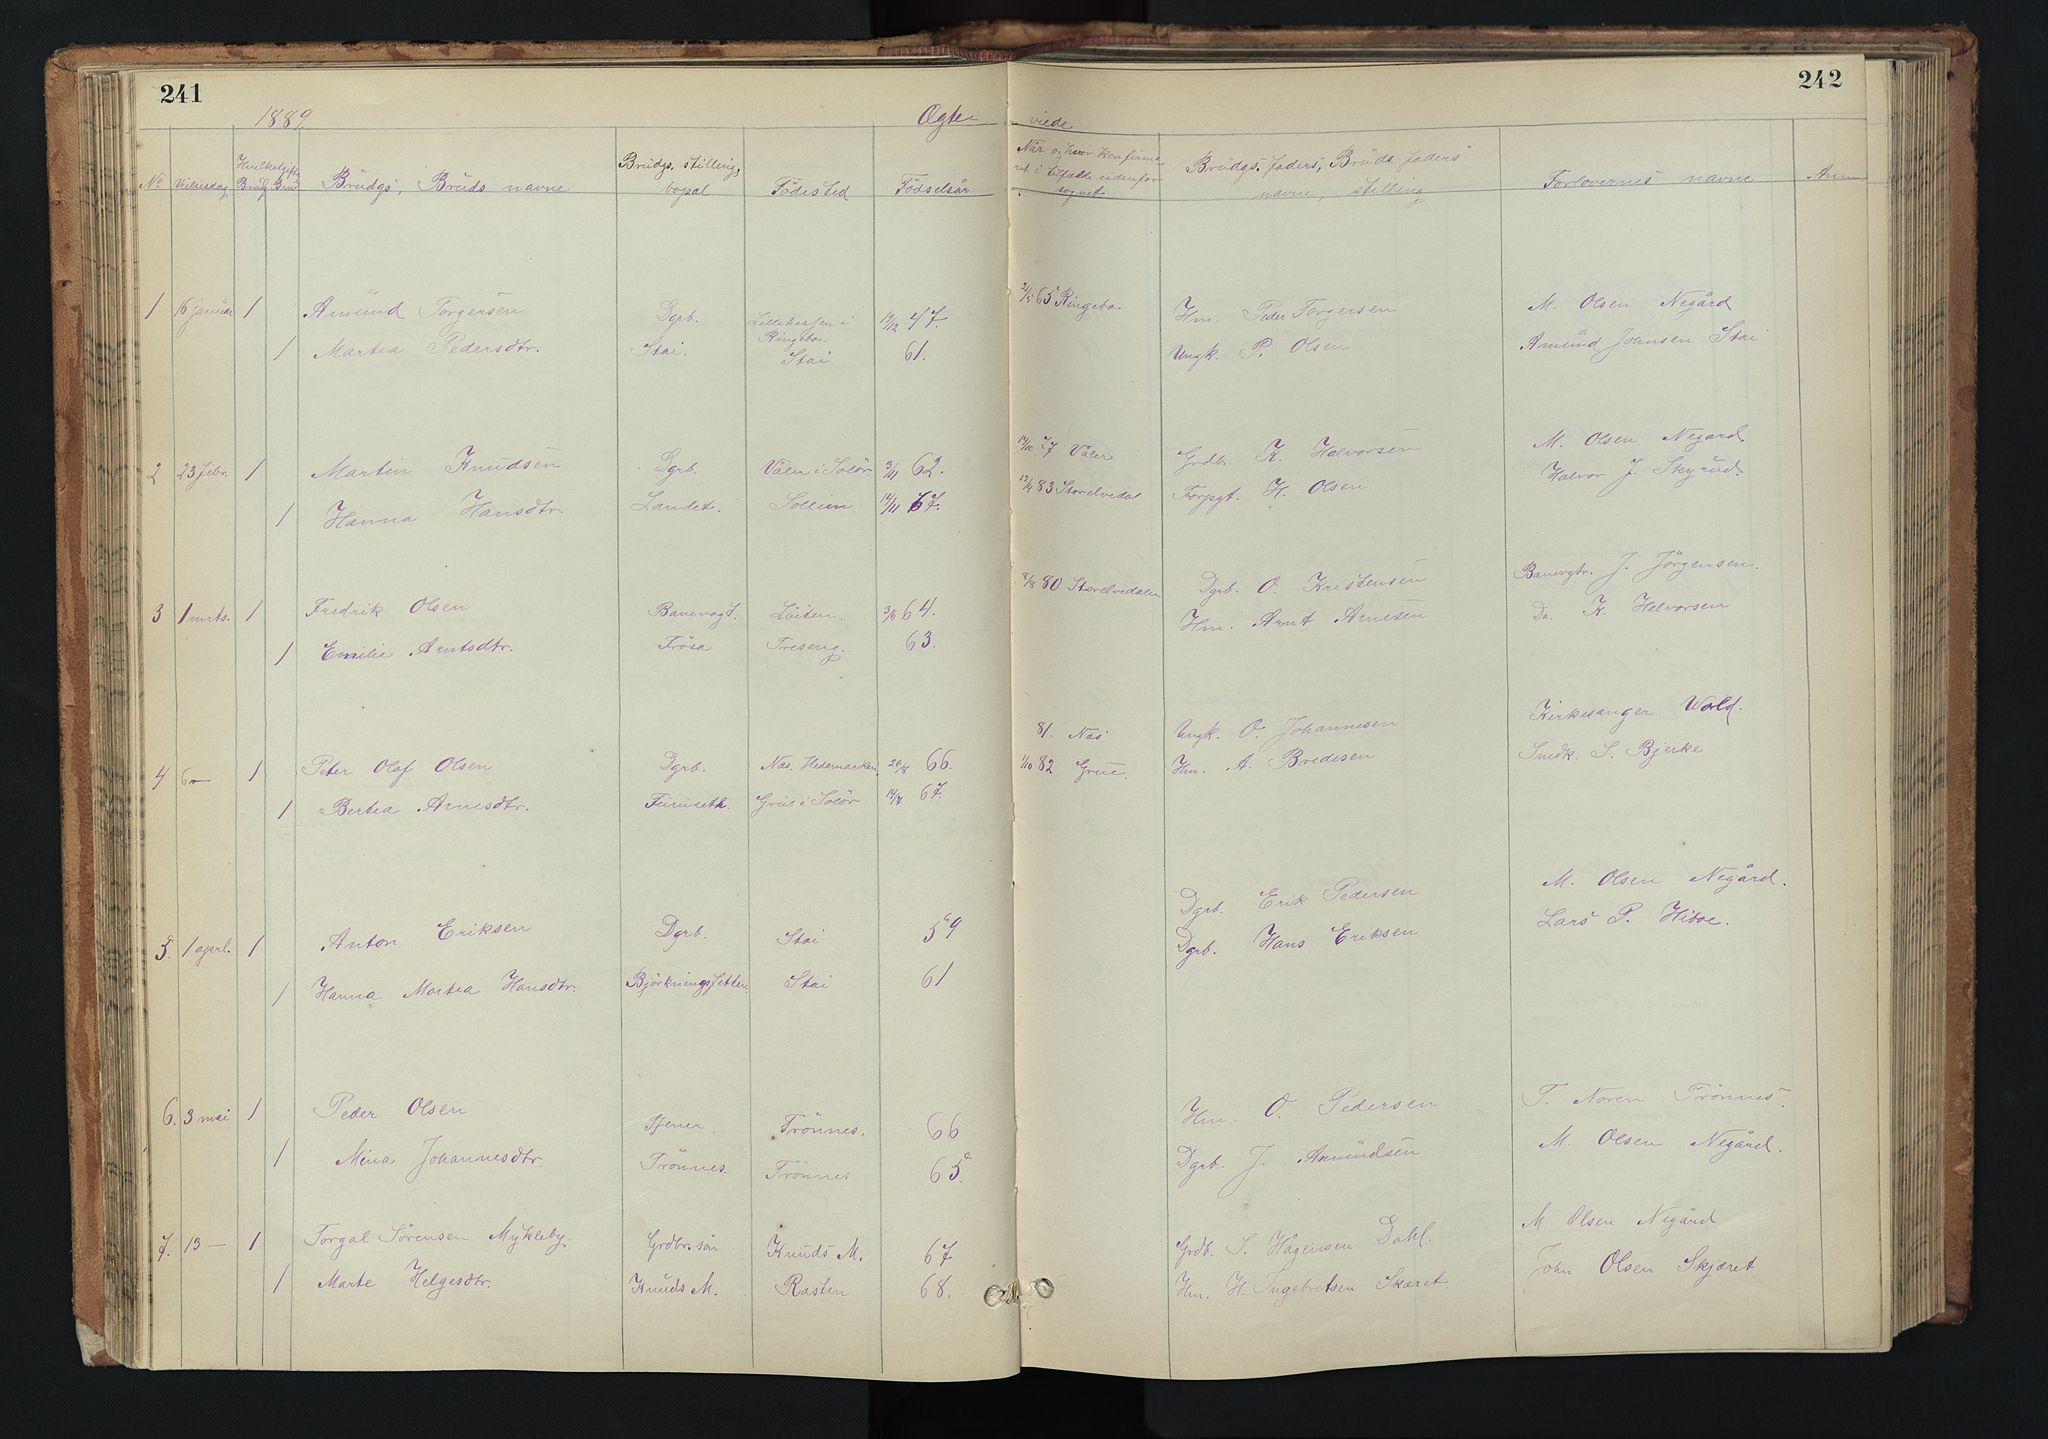 241
242
1889.
Ægte-
viede
No
Vielsesdag
Hvilketgifte
Brdg Brud
Brudgs, Bruds navne
Brudgs. stilling,
bopæl
Födested
Födselsår
Når og hvor konfirme-
ret i tilfælde udenfor
sognet
Brudgs. faders, Bruds faders
navne, stilling
Forlovernes navne
Anm.
1 16 januar 1 Amund Torgersen Dgrb. Lillehaffen i 19/12 47 21/5 65 Ringebo Hm. Peder Torgersen M. Olsen Negård
Ringebo.
1 Martea Pedersdtr. Stai. Stai 61. Ungk. P. Olsen Amund Johnsen Stai
2 23 febr. 1 Martin Knudsen Dgrb. Våler i Solör 3/11 62. 14/10 77 Våler Grdbr. K. Halvorsen M. Olsen Negård
1 Hanna Hansdtr. Landet. Sollien. 14/11 67. 83 Storelvedal Forpgt. H. Olsen Halvor J. Skyrud.
3 1 mrts. 1 Fredrik Olsen Banevogt. Löiten. 3/6 64. 8/8 80 Storelvedalen Dgrb. O. Kristensen Banevgtr. J. Jörgensen.
1 Emilie Arntsdtr. Frösa Treseng. 63. Hm. Arnt Arnesen Do. K. Halvorsen
4 6 — 1 Peter Olaf Olsen Dgrb. Næs. Hedemarken 26/8 66. 81. Næs Ungk. O. Johannesen Kirkesanger Wold.
1 Bertea Arnesdtr. Furuseth. Grue i Solör 14/7 67. 1/10 82 Grue. Hm. A. Bredesen Snedk. S. Bjerke
5. 1 aprl. 1 Anton Eriksen Dgrb. Stai 59 Dgrb. Erik Pedersen M. Olsen Negård.
1 Hanna Martea Hansdtr. Björkningssetten Stai 61 Dgrb. Hans Eriksen Lars P.
6. 3 mai 1 Peder Olsen Tjener. Trönnes. 66 Hm. O. Pedersen T. Noren Trönnes.
1 Mina Johannesdtr. Trönnes. Trönnes 65. Dgrb. J. Amundsen M. Olsen Negård.
7. 13 — 1 Torgal Sörensen Mykleby. Grdbr. sön Knuds M. 67 Grdb. S. Hågensen Dahl. M. Olsen Negård
1 Marte Helgesdtr. Knuds M. Rasten 68. Hm. H. Ingebretsen Skæret John Olsen Skjæret